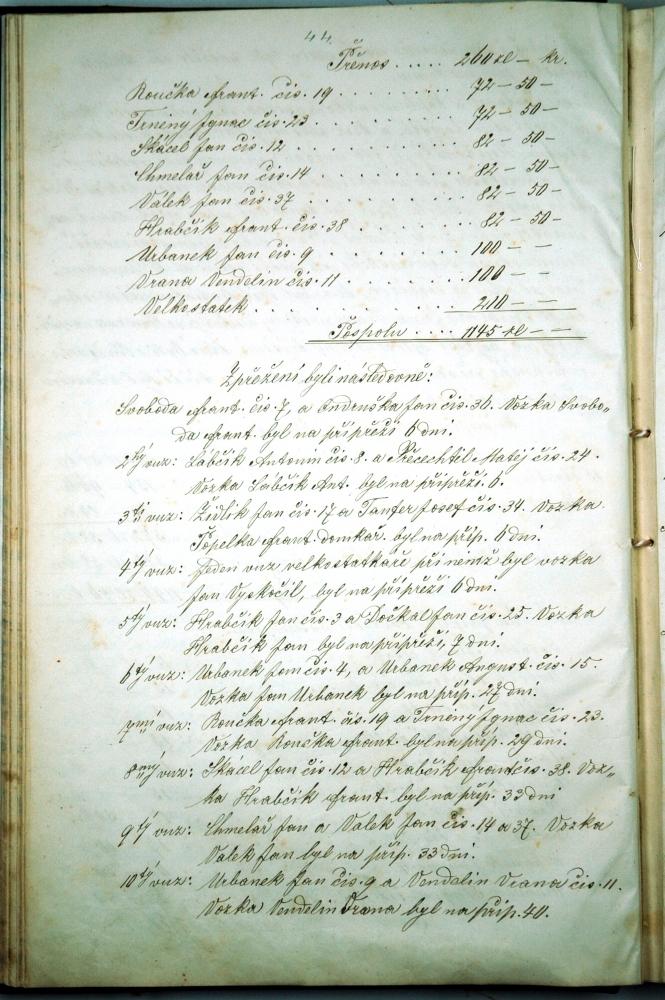 44.
Přenos ..... 260 zl — kr.
Roučka Frant. čis. 19 .......... 72 — 50 —
Trnéný Jgnac čis. 23 ......... 72 — 50 —
Skácel Jan čis. 12 .......... 82 — 50 —
Chmelař Jan čis. 14 ......... 82 — 50 —
Válek Jan čis. 37 .......... 82 — 50 —
Hrabčík Frant. čis. 38 ....... 82 — 50 —
Urbanek Jan čis. 9 ........ 100 — —
Vrana Vendelin čis. 11 ....... 100 — —
Velkostatek ........... 210 — —
Pospolu .... 1145 zl — —
Zpřežení byli následovně:
Svoboda Frant. čis. 7, a Ondruška Jan čis. 36. Vozka Svobo„
da Frant. byl na přípřeži 6 dní.
2hý vuz: Labčík Antonín čis. 8. a Přecechtěl Matěj čis. 24.
Vozka Labčík Ant. byl na přípřeži 6.
3tí vuz: Židlík Jan čis. 17 a Tanfer Josef čis. 34. Vozka
Popelka Frant. domkář. byl na příp. 6 dní.
4tý vuz: Jeden vuz velkostatkáře při němž byl vozka
Jan Vyskočil, byl na přípřeži 6 dní.
5tý vuz: Hrabčík Jan čis. 3 a Dočkal Jan čis. 25. Vozka
Hrabčík Jan byl na přípřeži, 7 dní.
6tý vuz: Urbanek Jan čis. 4, a Urbanek August. čis. 15.
Vozka Jan Urbanek byl na příp. 27 dní.
7mý vuz: Roučka Frant. čis. 19 a Trnéný Jgnac čis. 23.
Vozka Roučka Frant. byl na příp. 29 dní.
8mý vuz: Skácel Jan čis. 12 a Hrabčík Frant čis. 38. Voz„
ka Hrabčík Frant. byl na příp. 33 dní
9tý vuz: Chmelař Jan a Valek Jan čis. 14 a 37. Vozka
Valek Jan byl na příp. 33 dní.
10tý vuz: Urbanek Jan čis. 9 a Vendelin Vrana čis. 11.
Vozka Vendelin Vrana byl na příp. 40.